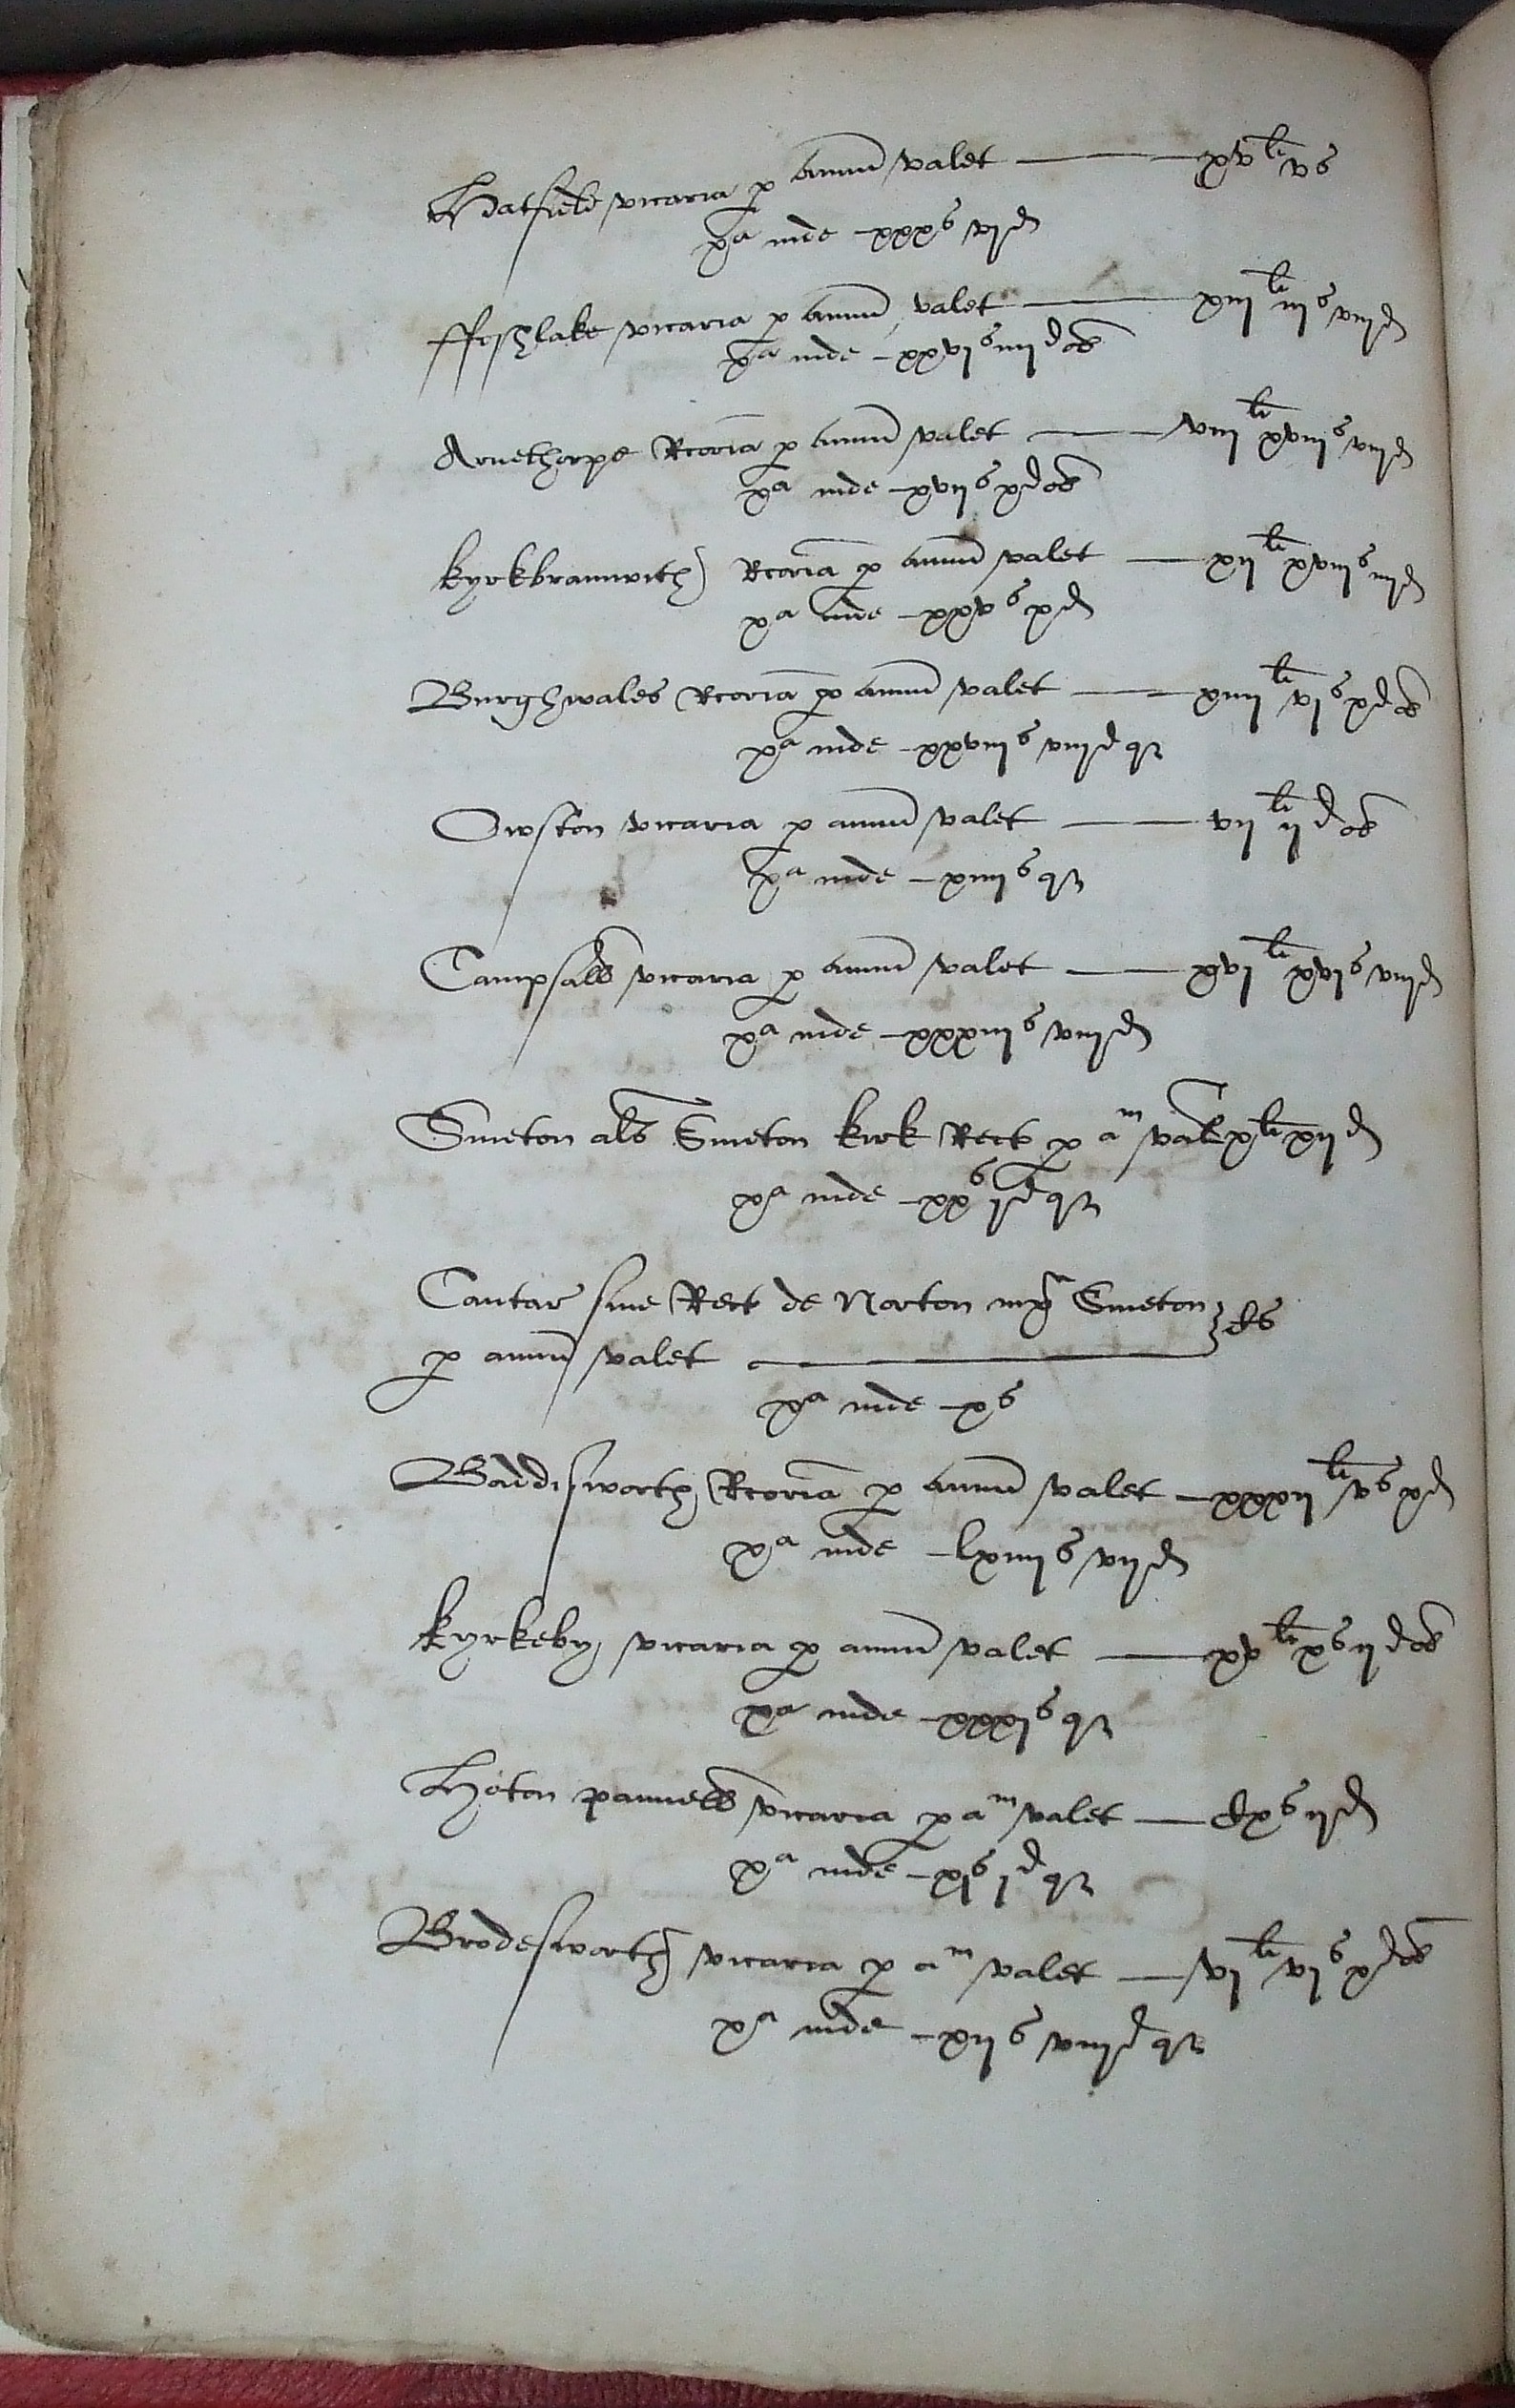 Hatfield vicaria p annu valet — xv li v s
xa inde — xxx s vj d
ffishlake vicaria p annu valet — xiij li iij s viij d
xa inde — xxvj s iiij d ob
Armethorpe Rcoria p annu valet — viij li xviij s viij d
xa inde — xvij s x d ob
kyrkbramwith Rcoria p annu valet — xij li xviij s iiij d
xa inde — xxv s x d
Burghwales Rcoria p annu valet — xiiij li vj s x d ob
xa inde — xxviij s viij d qz
Owston vicaria p annu valet — vij li ij d ob
xa inde — xiiij s qz
Campsall vicaria p annu valet — xvj li xvj s viij d
xa inde — xxxiij s viij d
Smeton als Smeton kirk Rect p am val x li xij d
xa inde — xx s j d qz
Cantar sive Rect de Norton in pa Smeton } C s
p annu valet —
xa inde — x s
Baddisworth Rcoria p annu valet — xxxij li v s x d
xa inde — lxiiij s vij d
kyrkeby vicaria p annu valet — xv li x s ij d ob
xa inde — xxxj s qz
Hoton pannell vicaria p am valet — Cx s ij d
xa inde — xj s j d qz
Brodesworth vicaria p am valet — vj li vj s x d ob
xa inde — xij s viij d qz